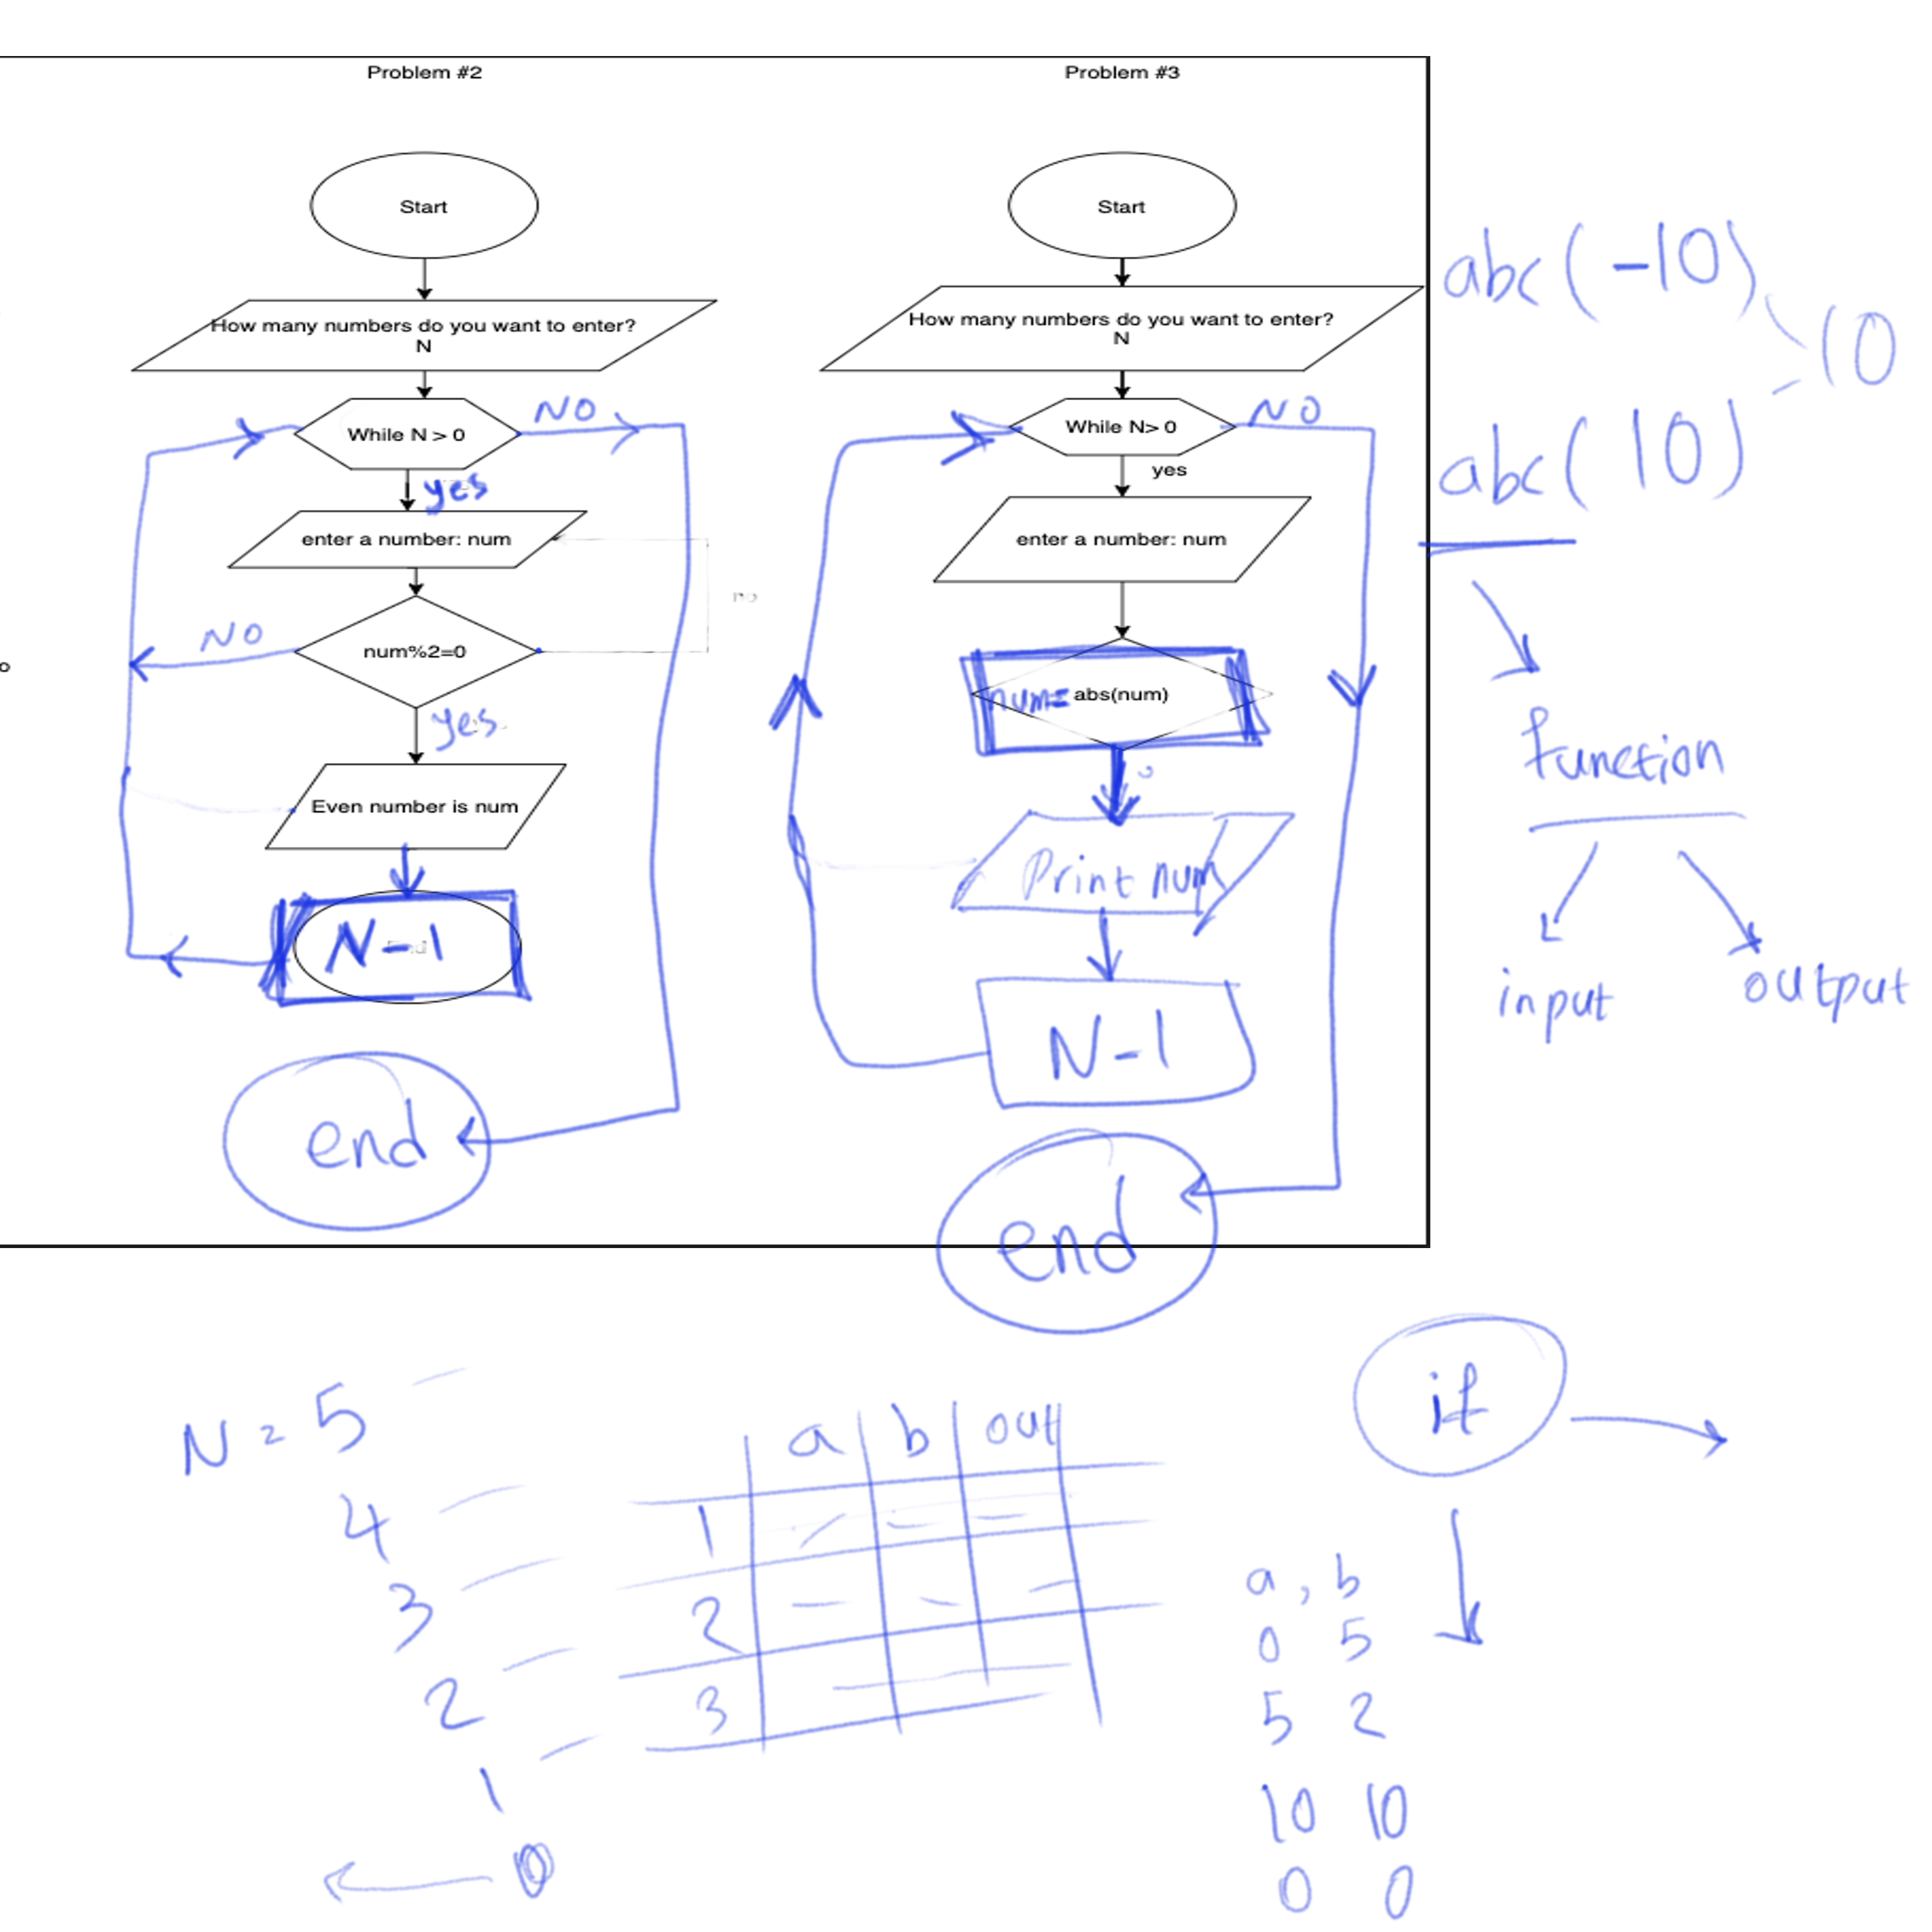 Problem #2
Start
How many numbers do you want to enter?
N
While N > 0
NO
yes
enter a number: num
no
num%2=0
NO
yes
Even number is num
N-1
end
Problem #3
Start
How many numbers do you want to enter?
N
While N> 0
NO
yes
enter a number: num
num= abs(num)
Print num
N-1
end
abc(-10)
10
abc(10)
function
input
output
o
N = 5
4
3
2
1
0
a b out
1
2
3
if
a, b
0 5
5 2
10 10
0 0